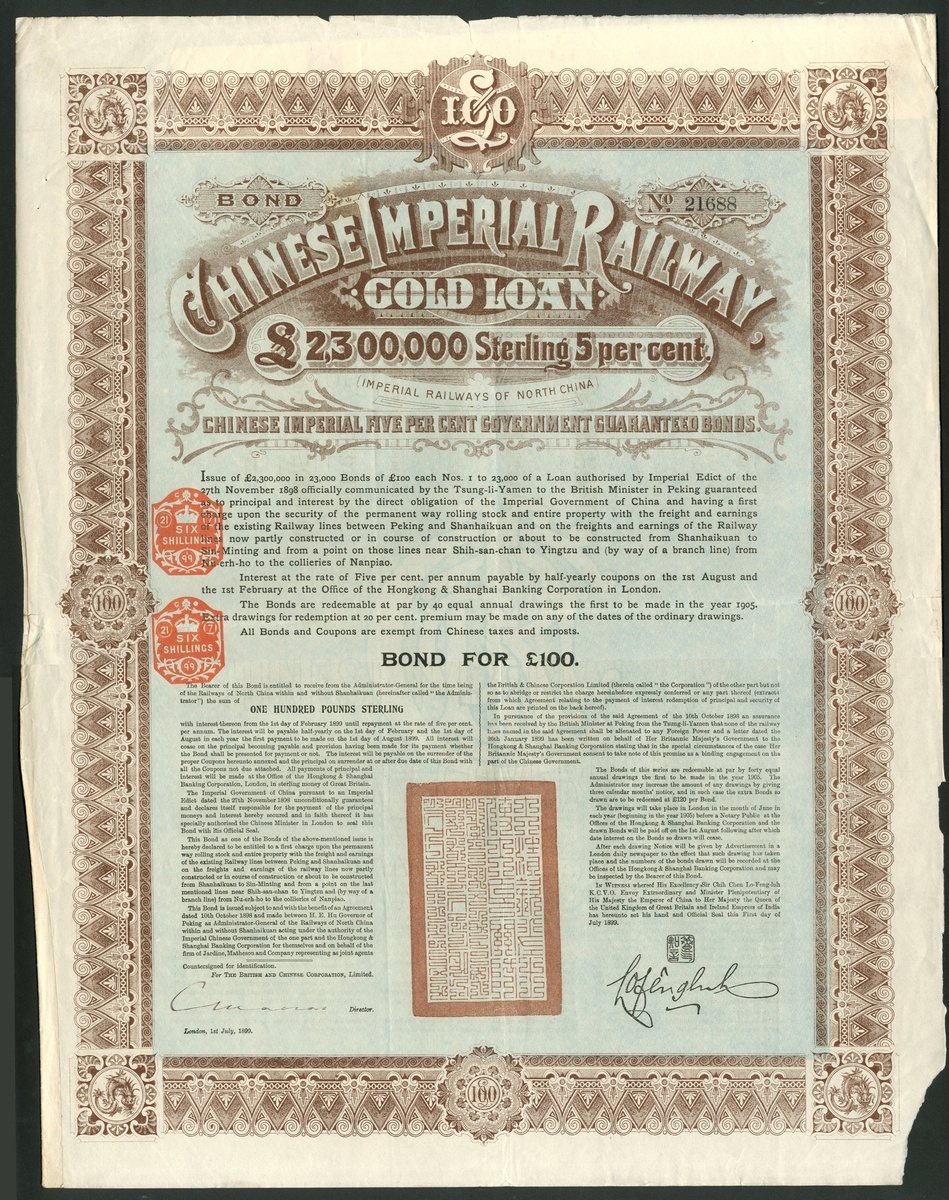 £100
BOND
No. 21688
CHINESE IMPERIAL RAILWAY,
GOLD LOAN
£2,300,000 Sterling 5 per cent.
(IMPERIAL RAILWAYS OF NORTH CHINA)
CHINESE IMPERIAL FIVE PER CENT GOVERNMENT GUARANTEED BONDS.
Issue of £2,300,000 in 23,000 Bonds of £100 each Nos. 1 to 23,000 of a Loan authorised by Imperial Edict of the
27th November 1898 officially communicated by the Tsung-li-Yamen to the British Minister in Peking guaranteed
as to principal and interest by the direct obligation of the Imperial Government of China and having a first
charge upon the security of the permanent way rolling stock and entire property with the freight and earnings
of the existing Railway lines between Peking and Shanhaikuan and on the freights and earnings of the Railway
lines now partly constructed or in course of construction or about to be constructed from Shanhaikuan to
Sin-Minting and from a point on those lines near Shih-san-chan to Yingtzu and (by way of a branch line) from
Nu-erh-ho to the collieries of Nanpiao.
Interest at the rate of Five per cent. per annum payable by half-yearly coupons on the 1st August and
the 1st February at the Office of the Hongkong & Shanghai Banking Corporation in London.
The Bonds are redeemable at par by 40 equal annual drawings the first to be made in the year 1905.
Extra drawings for redemption at 20 per cent. premium may be made on any of the dates of the ordinary drawings.
All Bonds and Coupons are exempt from Chinese taxes and imposts.
21 7
SIX
SHILLINGS
99
21 7
SIX
SHILLINGS
99
100
100
BOND FOR £100.
The Bearer of this Bond is entitled to receive from the Administrator-General for the time being
of the Railways of North China within and without Shanhaikuan (hereinafter called "the Adminis-
trator") the sum of
ONE HUNDRED POUNDS STERLING
with interest thereon from the 1st day of February 1899 until repayment at the rate of five per cent.
per annum. The interest will be payable half-yearly on the 1st day of February and the 1st day of
August in each year the first payment to be made on the 1st day of August 1899. All interest will
cease on the principal becoming payable and provision having been made for its payment whether
the Bond shall be presented for payment or not. The interest will be payable on the surrender of the
proper Coupons hereunto annexed and the principal on surrender at or after due date of this Bond with
all the Coupons not due attached. All payments of principal and
interest will be made at the Office of the Hongkong & Shanghai
Banking Corporation, London, in sterling money of Great Britain.
The Imperial Government of China pursuant to an Imperial
Edict dated the 27th November 1898 unconditionally guarantees
and declares itself responsible for the payment of the principal
moneys and interest hereby secured and in faith thereof it has
specially authorised the Chinese Minister in London to seal this
Bond with His Official Seal.
This Bond as one of the Bonds of the above-mentioned issue is
hereby declared to be entitled to a first charge upon the permanent
way rolling stock and entire property with the freight and earnings
of the existing Railway lines between Peking and Shanhaikuan and
on the freights and earnings of the railway lines now partly
constructed or in course of construction or about to be constructed
from Shanhaikuan to Sin-Minting and from a point on the last
mentioned lines near Shih-san-chan to Yingtzu and (by way of a
branch line) from Nu-erh-ho to the collieries of Nanpiao.
This Bond is issued subject to and with the benefit of an Agreement
dated 10th October 1898 and made between H. E. Hu Governor of
Peking as Administrator-General of the Railways of North China
within and without Shanhaikuan acting under the authority of the
Imperial Chinese Government of the one part and the Hongkong &
Shanghai Banking Corporation for themselves and on behalf of the
firm of Jardine, Matheson and Company representing as joint agents
the British & Chinese Corporation Limited (therein called "the Corporation") of the other part but not
so as to abridge or restrict the charge hereinbefore expressly conferred or any part thereof (extracts
from which Agreement relating to the payment of interest redemption of principal and security of
this Loan are printed on the back hereof).
In pursuance of the provisions of the said Agreement of the 10th October 1898 an assurance
has been received by the British Minister at Peking from the Tsung-li-Yamen that none of the railway
lines named in the said Agreement shall be alienated to any Foreign Power and a letter dated the
26th January 1899 has been written on behalf of Her Britannic Majesty's Government to the
Hongkong & Shanghai Banking Corporation stating that in the special circumstances of the case Her
Britannic Majesty's Government consent to take note of this promise as a binding engagement on the
part of the Chinese Government.
The Bonds of this series are redeemable at par by forty equal
annual drawings the first to be made in the year 1905. The
Administrator may increase the amount of any drawings by giving
three calendar months' notice, and in such case the extra Bonds so
drawn are to be redeemed at £120 per Bond.
The drawings will take place in London in the month of June in
each year (beginning in the year 1905) before a Notary Public at the
Offices of the Hongkong & Shanghai Banking Corporation and the
drawn Bonds will be paid off on the 1st August following after which
date interest on the Bonds so drawn will cease.
After each drawing Notice will be given by Advertisement in a
London daily newspaper to the effect that such drawing has taken
place and the numbers of the bonds drawn will be recorded at the
Offices of the Hongkong & Shanghai Banking Corporation and may
be inspected by the Bearer of this Bond.
In Witness whereof His Excellency Sir Chih Chen Lo-Feng-luh
K.C.V.O. Envoy Extraordinary and Minister Plenipotentiary of
His Majesty the Emperor of China to Her Majesty the Queen of
the United Kingdom of Great Britain and Ireland Empress of India
has hereunto set his hand and Official Seal this First day of
July 1899.
Lofengluh
Countersigned for identification.
For THE BRITISH AND CHINESE CORPORATION, Limited.
Director.
London, 1st July, 1899.
100